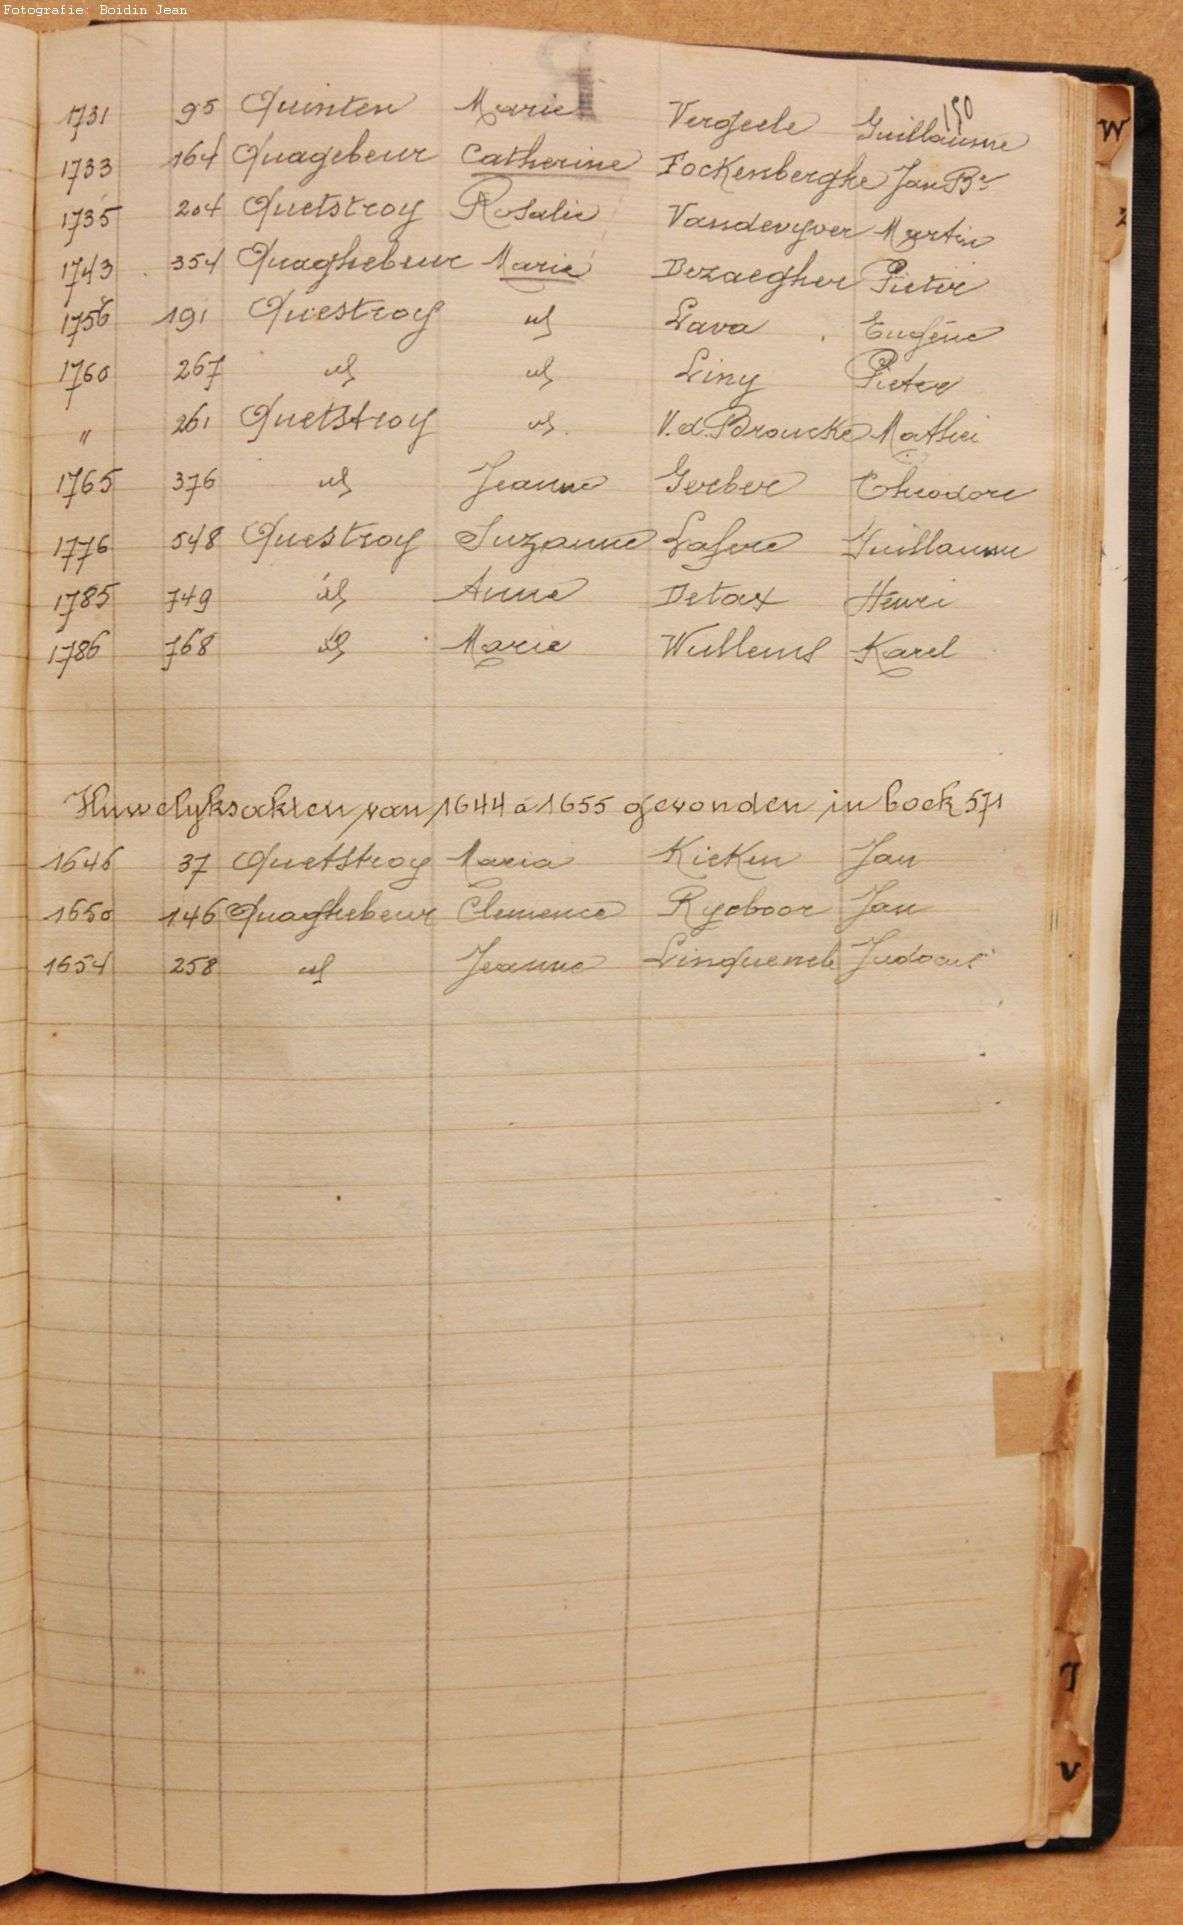 Fotografie: Boidin Jean
190
1731 95 Quinten Marie Vergeele Guillaume
1733 164 Quagebeur Catherine Fockenberghe Jan Bte
1735 204 Quetstroy Rosalie Vandevyver Martin
1743 354 Quaghebeur Marie Dezaegher Pieter
1756 191 Questroy id Lava Eugéne
1760 267 id id Liny Pieter
" 261 Quetstroy id V.d.Broucke Mathieu
1765 376 id Jeanne Gerber Theodore
1776 548 Questroy Suzanne Lafere Guillaume
1785 749 id Anne Detax Henri
1786 768 id Marie Wullems Karel
Huwelyksakten van 1644 á 1655 gevonden in boek 571
1646 37 Quetstroy Maria Kieken Jan
1650 146 Quaghebeur Clemence Ryeboor Jan
1654 258 id Jeanne Judocus
W
Z
J
V